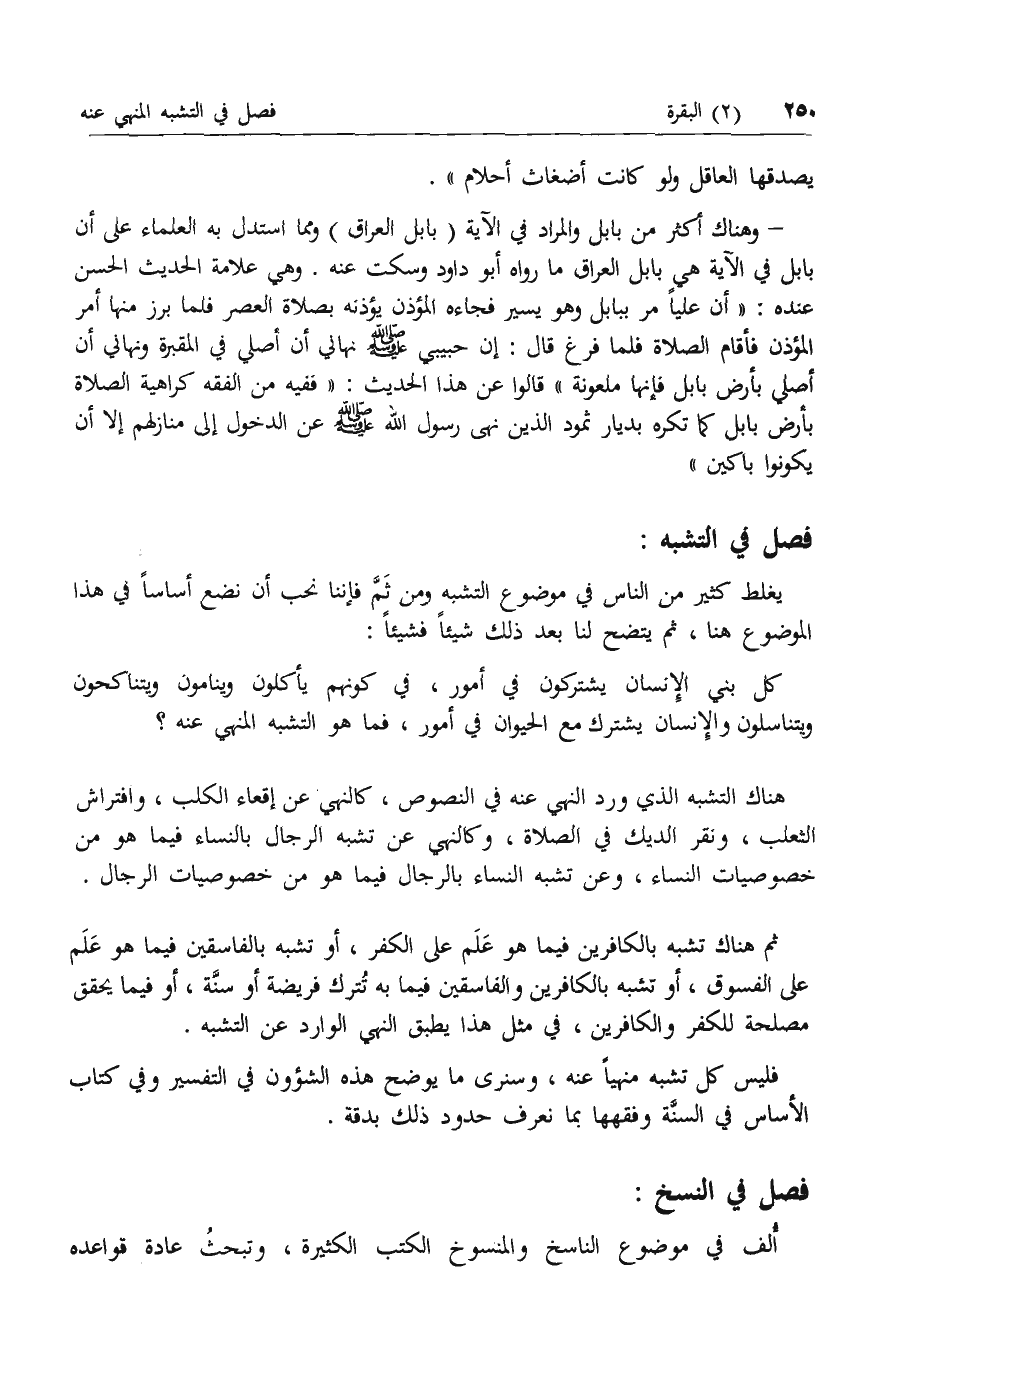 ٢٥٠ (٢) البقرة فصل في التشبه المنهي عنه
يصدقها العاقل ولو كانت أضغاث أحلام » .
– وهناك أكثر من بابل والمراد في الآية ( بابل العراق ) ومما استدل به العلماء على أن
بابل في الآية هي بابل العراق ما رواه أبو داود وسكت عنه . وهي علامة الحديث الحسن
عنده : « أن علياً مر ببابل وهو يسير فجاءه المؤذن يؤذنه بصلاة العصر فلما برز منها أمر
المؤذن فأقام الصلاة فلما فرغ قال : إن حبيبي ﷺ نهاني أن أصلي في المقبرة ونهاني أن
أصلي بأرض بابل فإنها ملعونة » قالوا عن هذا الحديث : « ففيه من الفقه كراهية الصلاة
بأرض بابل كما تكره بديار ثمود الذين نهى رسول الله ﷺ عن الدخول إلى منازلهم إلا أن
يكونوا باكين »
فصل في التشبه :
يغلط كثير من الناس في موضوع التشبه ومن ثَمَّ فإننا نحب أن نضع أساساً في هذا
الموضوع هنا ، ثم يتضح لنا بعد ذلك شيئاً فشيئاً :
كل بني الإنسان يشتركون في أمور ، في كونهم يأكلون وينامون ويتناكحون
ويتناسلون والإنسان يشترك مع الحيوان في أمور ، فما هو التشبه المنهي عنه ؟
هناك التشبه الذي ورد النهي عنه في النصوص ، كالنهي عن إقعاء الكلب ، وافتراش
الثعلب ، ونقر الديك في الصلاة ، وكالنهي عن تشبه الرجال بالنساء فيما هو من
خصوصيات النساء ، وعن تشبه النساء بالرجال فيما هو من خصوصيات الرجال .
ثم هناك تشبه بالكافرين فيما هو عَلَم على الكفر ، أو تشبه بالفاسقين فيما هو عَلَم
على الفسوق ، أو تشبه بالكافرين والفاسقين فيما به تُترك فريضة أو سنَّة ، أو فيما يحقق
مصلحة للكفر والكافرين ، في مثل هذا يطبق النهي الوارد عن التشبه .
فليس كل تشبه منهياً عنه ، وسنرى ما يوضح هذه الشؤون في التفسير وفي كتاب
الأساس في السنَّة وفقهها بما نعرف حدود ذلك بدقة .
فصل في النسخ :
أُلف في موضوع الناسخ والمنسوخ الكتب الكثيرة ، وتبحثُ عادة قواعده